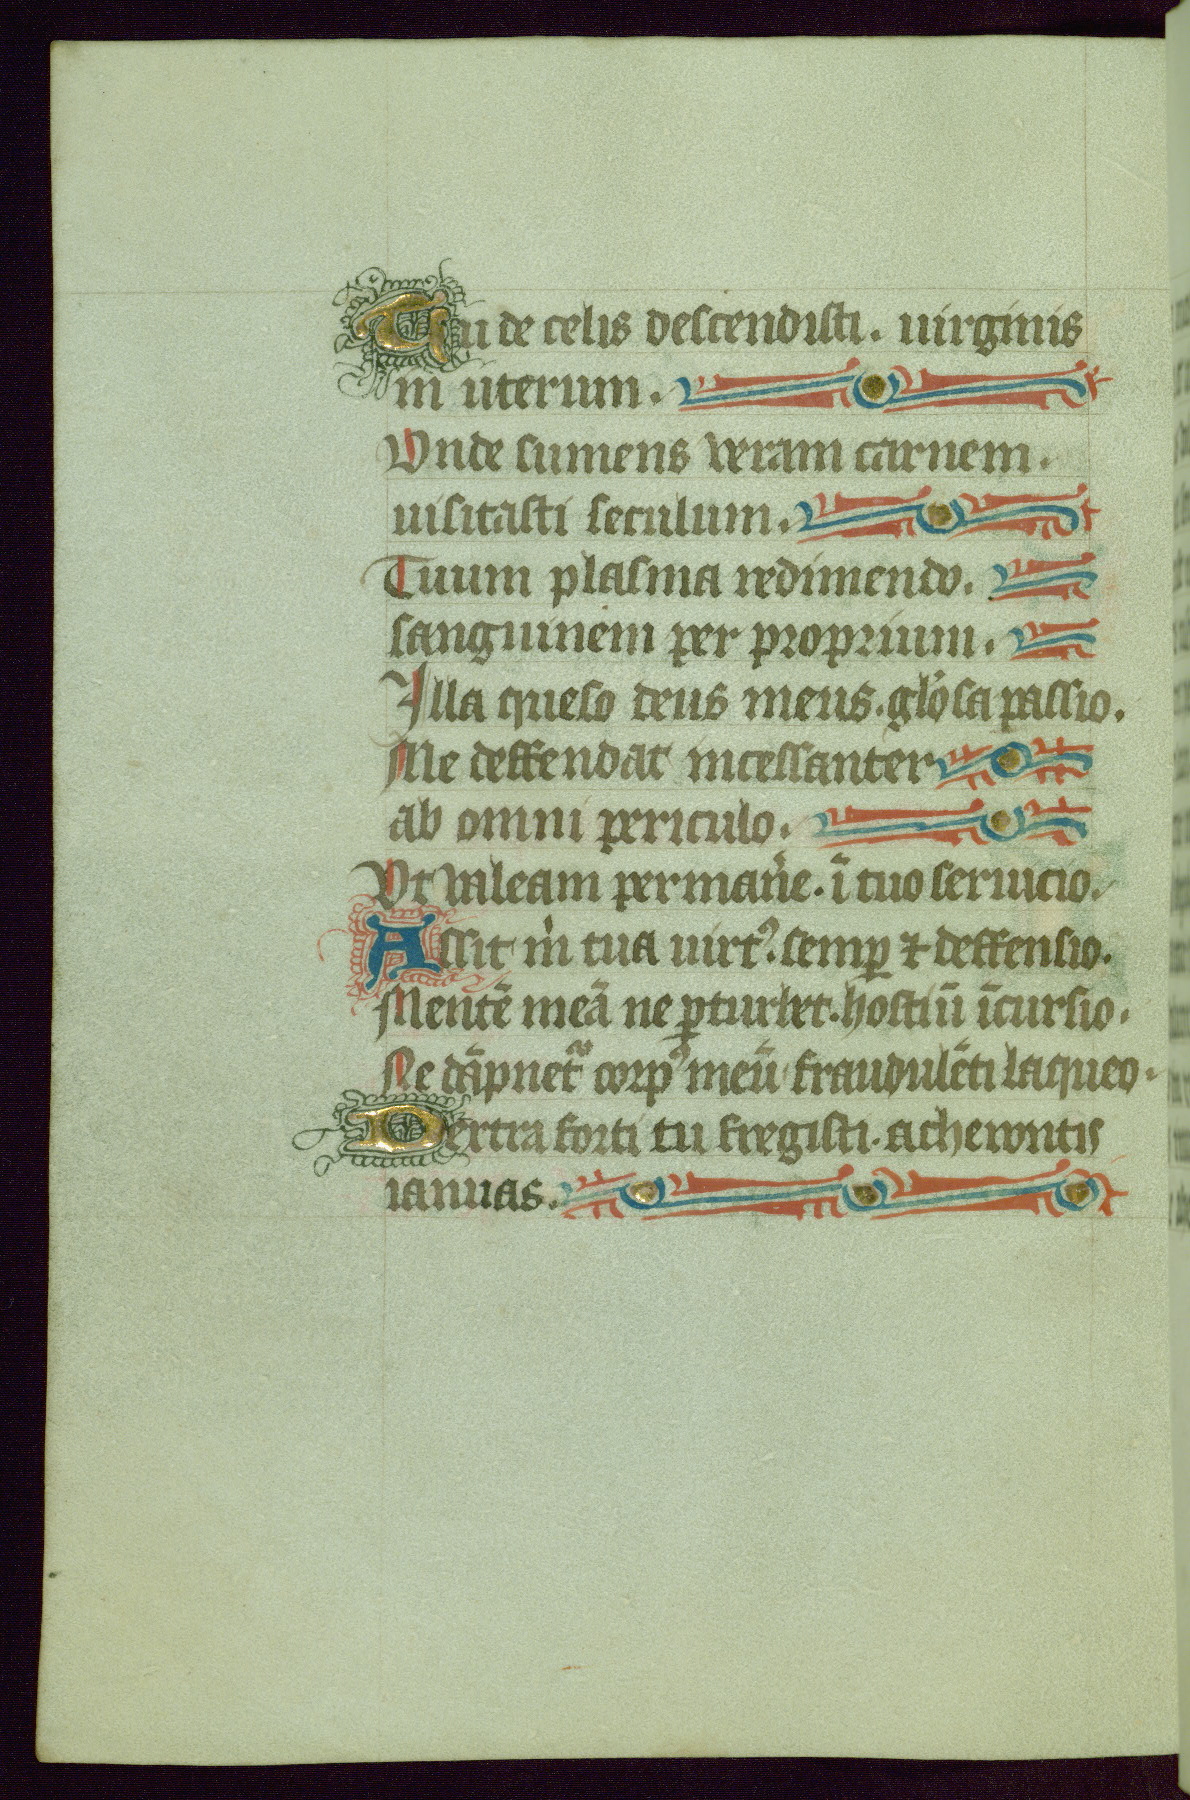 Tu de celis descendisti. uirginis
in uterum.
Vnde sumens veram carnem.
uisitasti seculum.
Tuum plasma redimendo.
sanguinem per proprium.
Illa queso deus meus. glo͛sa passio.
Me deffendat incessanter
ab omni periculo.
Vt valeam permane͛. ĩ tuo seruicio.
Assit m̍ tua uirtꝰ. semꝑ ⁊ deffensio.
Mentẽ meã ne ꝑturbet. hostiũ ĩcursio.
Ne dãpnetᷣ corpꝰ meũ fraudulẽti laqueo.
Dextra forti tu fregisti. acherontis
ianuas.